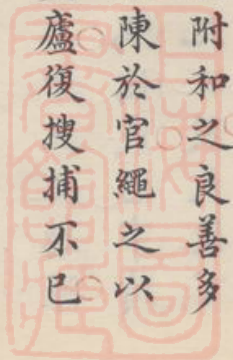 附和之良善多
陳於官繩之以
廬復搜捕不已